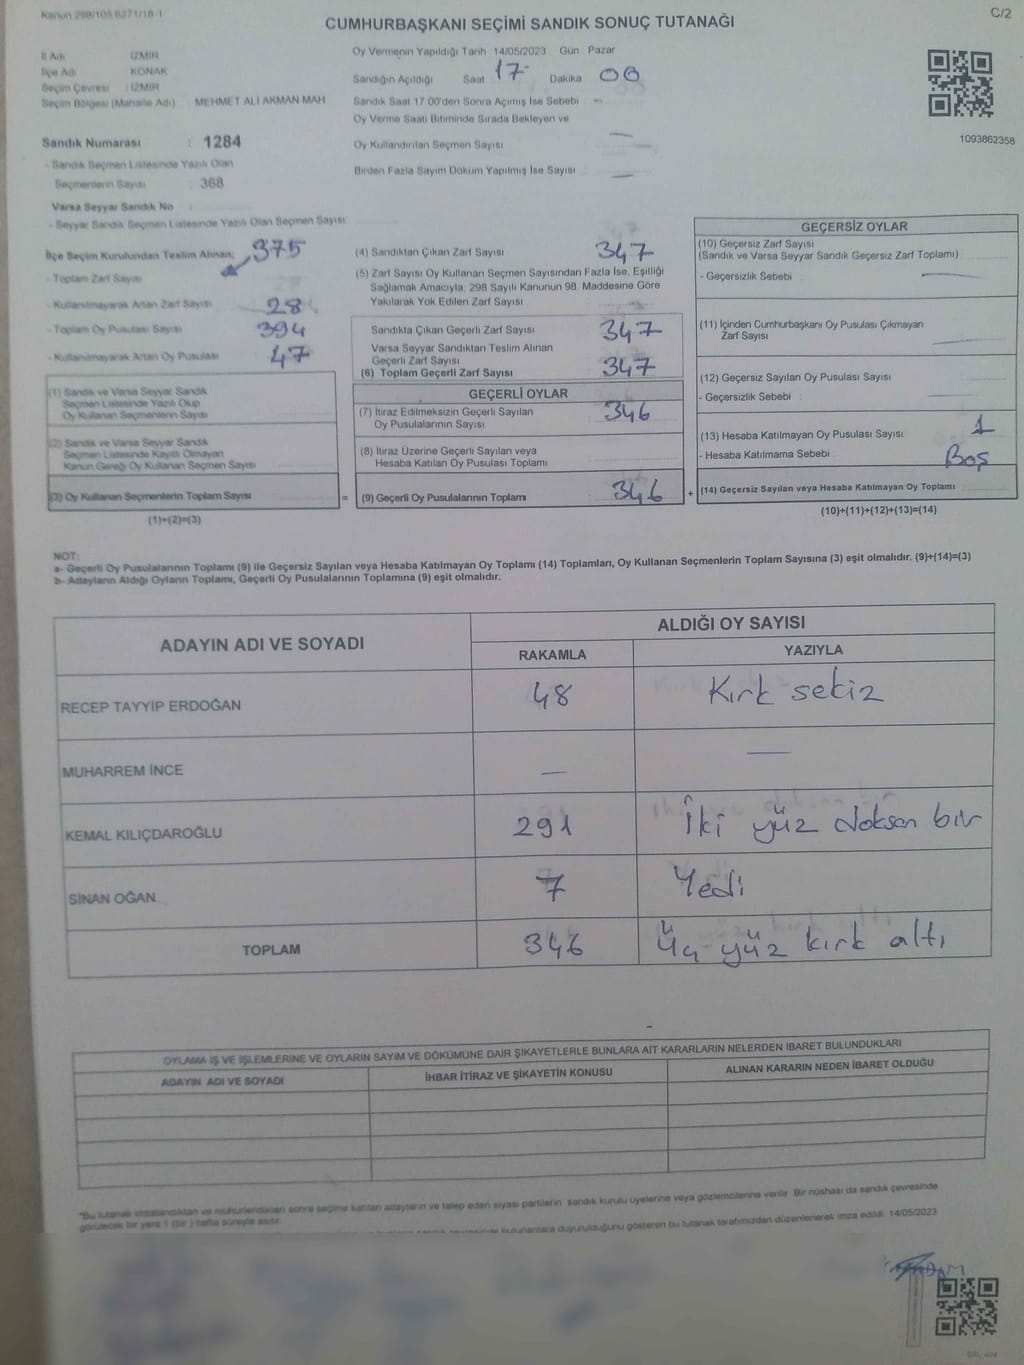 Kanun 298/105 6271/18-1
C/2
CUMHURBAŞKANI SEÇİMİ SANDIK SONUÇ TUTANAĞI
İl Adı : İZMİR
İlçe Adı : KONAK
Seçim Çevresi : İZMİR
Seçim Bölgesi (Mahalle Adı) : MEHMET ALİ AKMAN MAH
Sandık Numarası : 1284
- Sandık Seçmen Listesinde Yazılı Olan
Seçmenlerin Sayısı : 368
Varsa Seyyar Sandık No :
- Seyyar Sandık Seçmen Listesinde Yazılı Olan Seçmen Sayısı
Oy Vermenin Yapıldığı Tarih 14/05/2023 Gün : Pazar
Sandığın Açıldığı Saat 17 Dakika 00
Sandık Saat 17 00'den Sonra Açımış İse Sebebi
Oy Verme Saati Bitiminde Sırada Bekleyen ve
Oy Kullandırılan Seçmen Sayısı
Birden Fazla Sayım Döküm Yapılmış İse Sayısı
1093862358
İlçe Seçim Kurulundan Teslim Alınan; 375
- Toplam Zarf Sayısı
- Kullanılmayarak Artan Zarf Sayısı : 28
- Toplam Oy Pusulası Sayısı 394
- Kullanılmayarak Artan Oy Pusulası 47
(1) Sandık ve Varsa Seyyar Sandık
Seçmen Listesinde Yazılı Olup
Oy Kullanan Seçmenlerin Sayısı
(2) Sandık ve Varsa Seyyar Sandık
Seçmen Listesinde Kayıtlı Olmayan
Kanun Gereği Oy Kullanan Seçmen Sayısı
(3) Oy Kullanan Seçmenlerin Toplam Sayısı
(1)+(2)=(3)
=
(4) Sandıktan Çıkan Zarf Sayısı 347
(5) Zarf Sayısı Oy Kullanan Seçmen Sayısından Fazla İse, Eşitliği
Sağlamak Amacıyla, 298 Sayılı Kanunun 98. Maddesine Göre
Yakılarak Yok Edilen Zarf Sayısı
Sandıkta Çıkan Geçerli Zarf Sayısı 347
Varsa Seyyar Sandıktan Teslim Alınan
Geçerli Zarf Sayısı
(6) Toplam Geçerli Zarf Sayısı 347
GEÇERLİ OYLAR
(7) İtiraz Edilmeksizin Geçerli Sayılan 346
Oy Pusulalarının Sayısı
(8) İtiraz Üzerine Geçerli Sayılan veya
Hesaba Katılan Oy Pusulası Toplamı
(9) Geçerli Oy Pusulalarının Toplamı : 346
+
GEÇERSİZ OYLAR
(10) Geçersiz Zarf Sayısı
(Sandık ve Varsa Seyyar Sandık Geçersiz Zarf Toplamı)
- Geçersizlik Sebebi :
(11) İçinden Cumhurbaşkanı Oy Pusulası Çıkmayan
Zarf Sayısı
(12) Geçersiz Sayılan Oy Pusulası Sayısı
- Geçersizlik Sebebi :
(13) Hesaba Katılmayan Oy Pusulası Sayısı 1
- Hesaba Katılmama Sebebi : Boş
(14) Geçersiz Sayılan veya Hesaba Katılmayan Oy Toplamı
(10)+(11)+(12)+(13)=(14)
NOT:
a- Geçerli Oy Pusulalarının Toplamı (9) ile Geçersiz Sayılan veya Hesaba Katılmayan Oy Toplamı (14) Toplamları, Oy Kullanan Seçmenlerin Toplam Sayısına (3) eşit olmalıdır. (9)+(14)=(3)
b- Adayların Aldığı Oyların Toplamı, Geçerli Oy Pusulalarının Toplamına (9) eşit olmalıdır.
ADAYIN ADI VE SOYADI
ALDIĞI OY SAYISI
RAKAMLA YAZIYLA
RECEP TAYYİP ERDOĞAN 48 Kırk sekiz
MUHARREM İNCE — —
KEMAL KILIÇDAROĞLU 291 İki yüz doksan bir
SİNAN OĞAN 7 Yedi
TOPLAM 346 Üç yüz kırk altı
OYLAMA İŞ VE İŞLEMLERİNE VE OYLARIN SAYIM VE DÖKÜMÜNE DAİR ŞİKAYETLERLE BUNLARA AİT KARARLARIN NELERDEN İBARET BULUNDUKLARI
ADAYIN ADI VE SOYADI İHBAR İTİRAZ VE ŞİKAYETİN KONUSU ALINAN KARARIN NEDEN İBARET OLDUĞU
"Bu tutanak imzalandıktan ve mühürlendikten sonra seçime katılan adayların ve talep eden siyasi partilerin sandık kurulu üyelerine veya gözlemcilerine verilir. Bir nüshası da sandık çevresinde
görülecek bir yere 1 (bir ) hafta süreyle asılır.
bulunanlara duyurulduğunu gösteren bu tutanak tarafımızdan düzenlenerek imza edildi. 14/05/2023